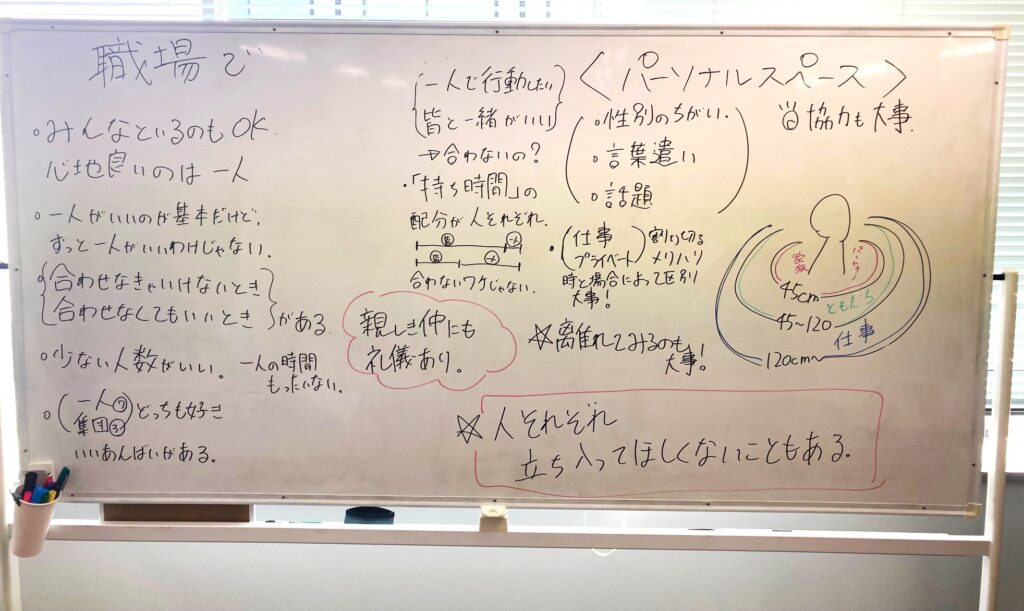 職場で
〈パーソナルスペース〉
◦みんなといるのもOK.
心地良いのは一人
◦一人がいいのが基本だけど、
ずっと一人がいいわけじゃない.
◦合わせなきゃいけないとき
合わせなくてもいいとき
がある.
◦少ない人数がいい.
一人の時間
もったいない.
◦一人⑦
集団③
どっちも好き
いいあんばいがある.
一人で行動したい
皆と一緒がいい
→合わないの?
・「持ち時間」の
配分が人それぞれ.
皆 一人
皆 一人
合わないワケじゃない.
親しき仲にも
礼儀あり.
◦性別のちがい.
◦言葉遣い
◦話題
協力も大事.
・(仕事
プライベート)
割り切る
メリハリ
時と場合によって区別
大事!
☆離れてみるのも
大事!
家族
パートナー
45cm
ともだち
45~120
仕事
120cm~
☆人それぞれ
立ち入ってほしくないこともある.